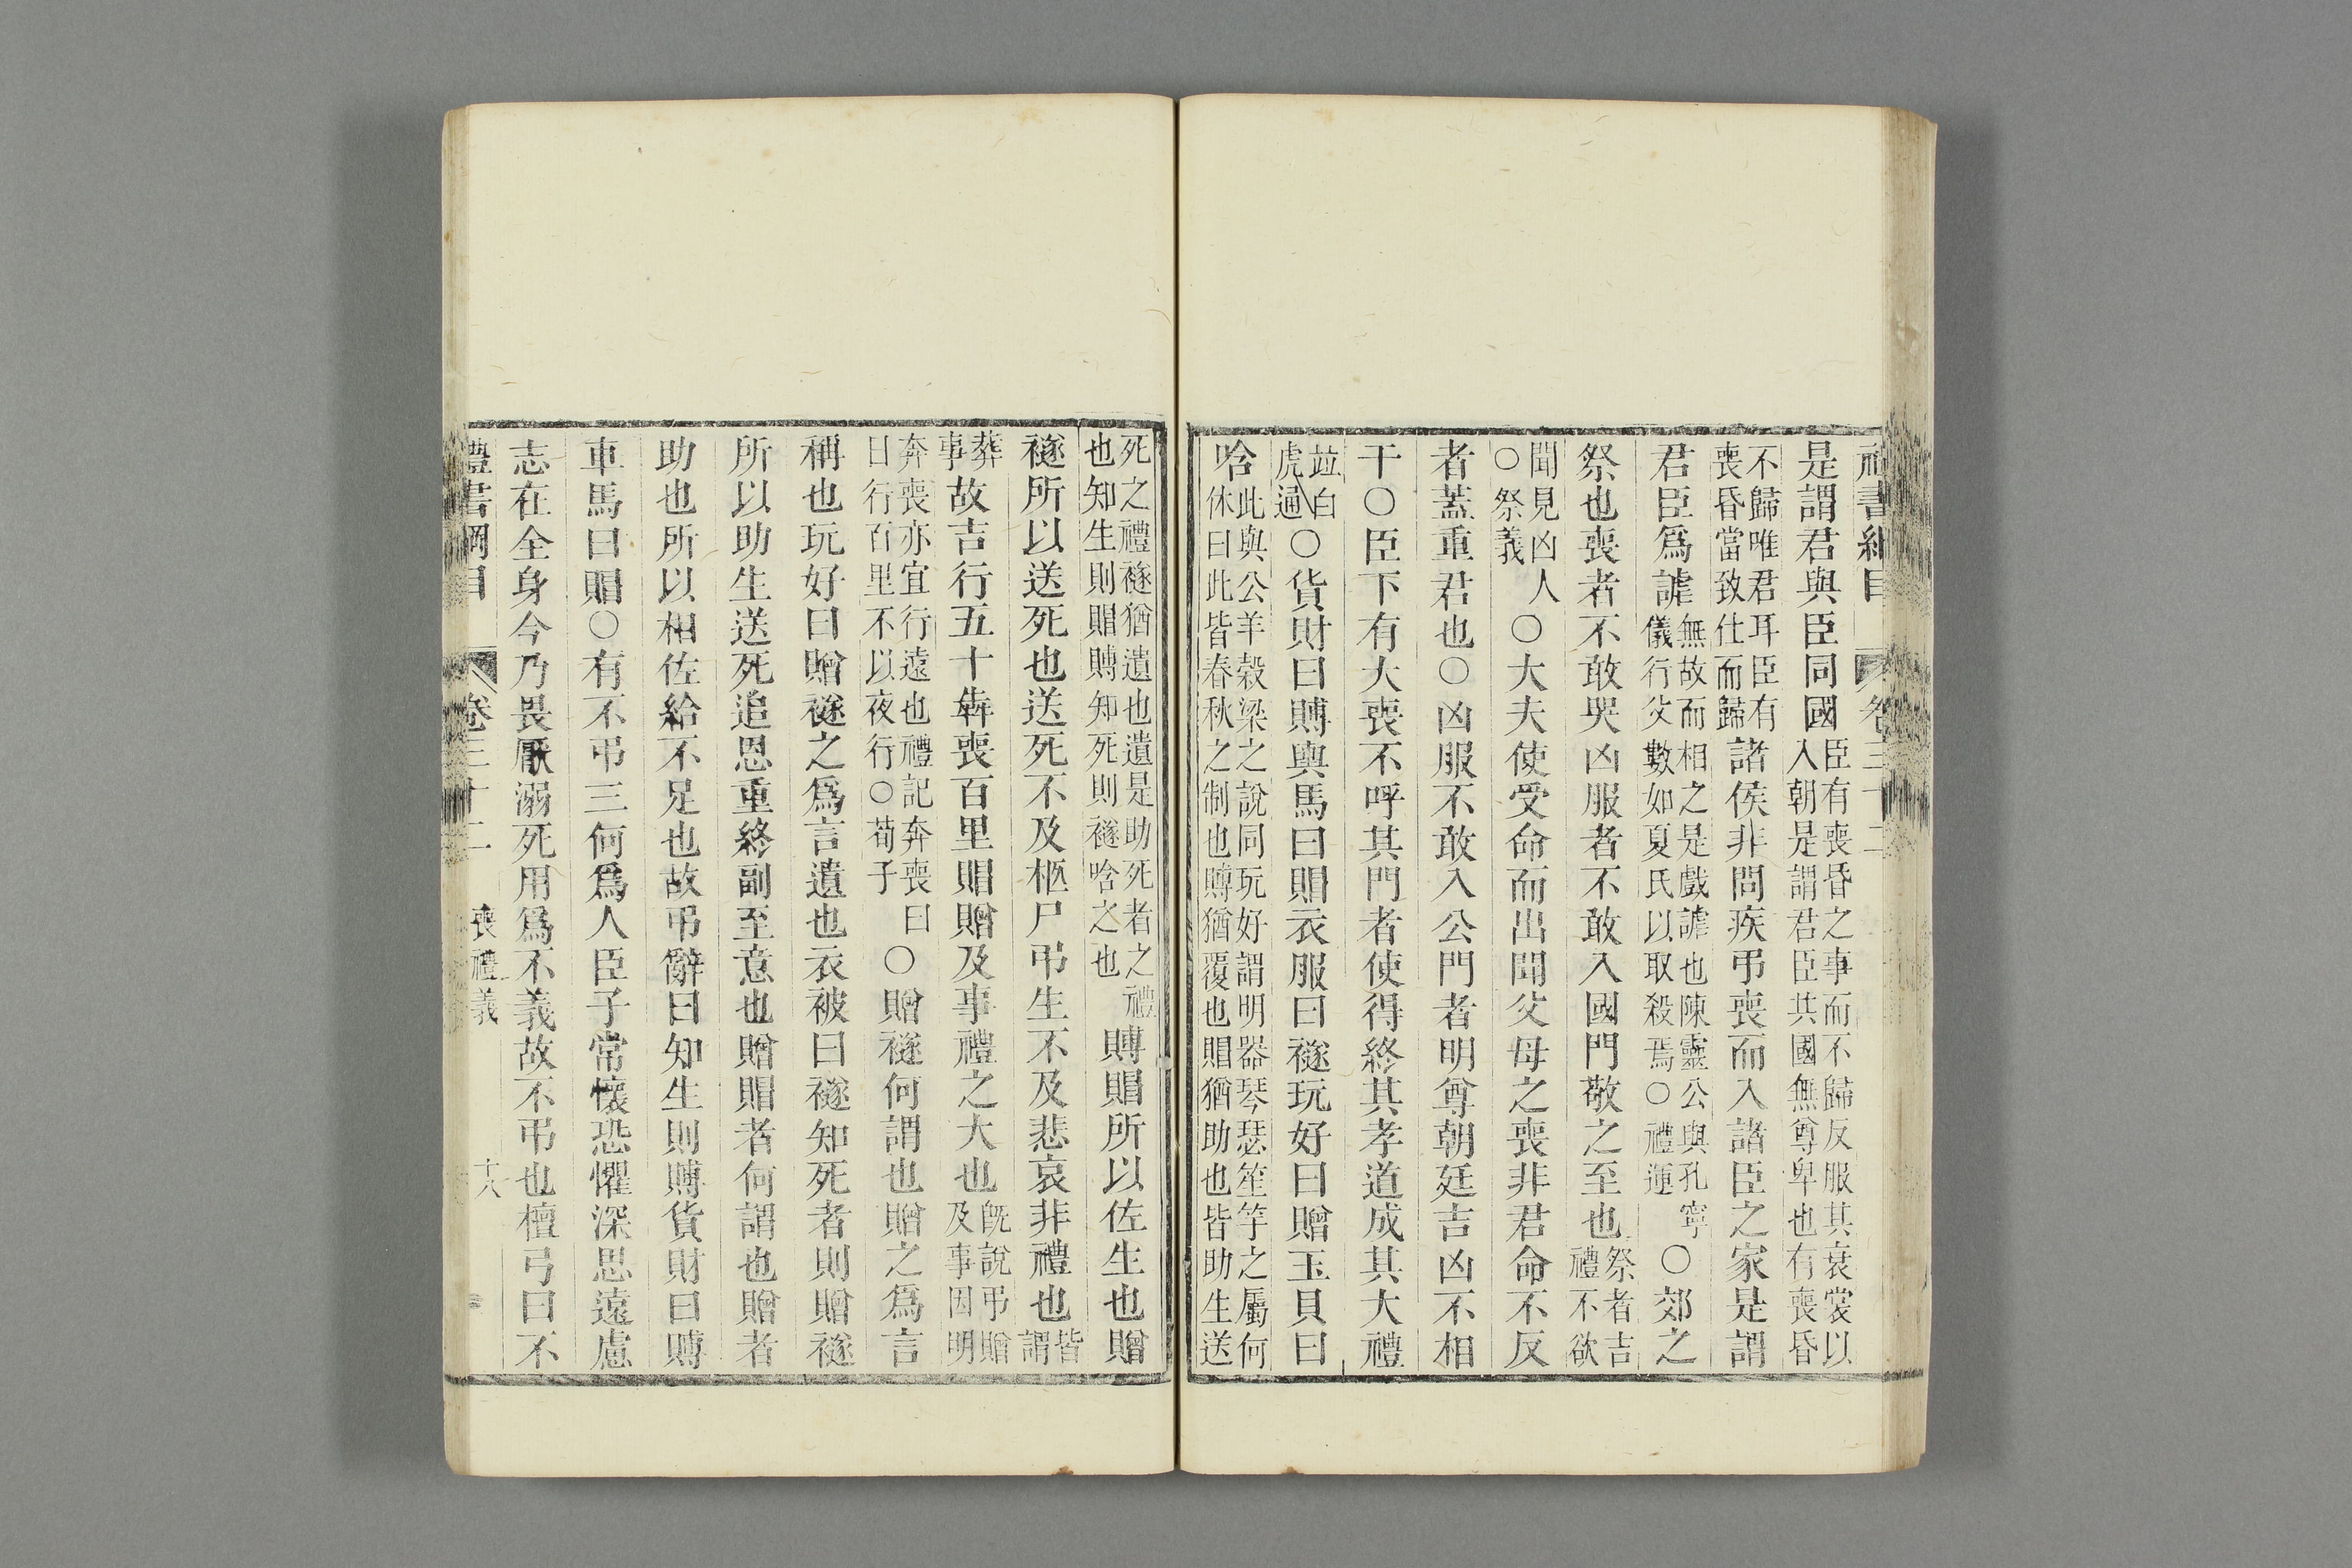 書 目 卷三十二
是謂君與臣同國臣有喪昏之事而不歸反服其衰裳以入朝是謂君臣共國無尊卑也有喪昏
不歸唯君耳臣有喪昏當致仕而歸諸侯非問疾弔喪而入諸臣之家是謂
君臣爲謔無故而相之是戲謔也陳靈公與孔寧儀行父數如夏氏以取殺焉○禮運○郊之
祭也喪者不敢哭凶服者不敢入國門敬之至也祭者吉禮不欲
聞見凶人○祭義○大夫使受命而出聞父母之喪非君命不反
者蓋重君也○凶服不敢入公門者明尊朝廷吉凶不相
干○臣下有大喪不呼其門者使得終其孝道成其大禮
竝白虎通○貨財曰賻與馬曰賵衣服曰襚玩好曰贈玉貝曰
唅此與公羊穀梁之說同玩好謂明器琴瑟笙竽之屬何休曰此皆春秋之制也賻猶覆也賵猶助也皆助生送
死之禮襚猶遺也遺是助死者之禮也知生則賵賻知死則襚唅之也賻賵所以佐生也贈
襚所以送死也送死不及柩尸弔生不及悲哀非禮也皆謂
葬事故吉行五十犇喪百里賵贈及事禮之大也旣說弔贈及事因明
奔喪亦宜行遠也禮記奔喪曰日行百里不以夜行○荀子○贈襚何謂也贈之爲言
稱也玩好曰贈襚之爲言遺也衣被曰襚知死者則贈襚
所以助生送死追恩重終副至意也贈賵者何謂也贈者
助也所以相佐給不足也故弔辭曰知生則賻貨財曰賻
車馬曰賵○有不弔三何爲人臣子常懷恐懼深思遠慮
志在全身今乃畏厭溺死用爲不義故不弔也檀弓曰不
禮書綱目 卷三十二 喪禮義 十八